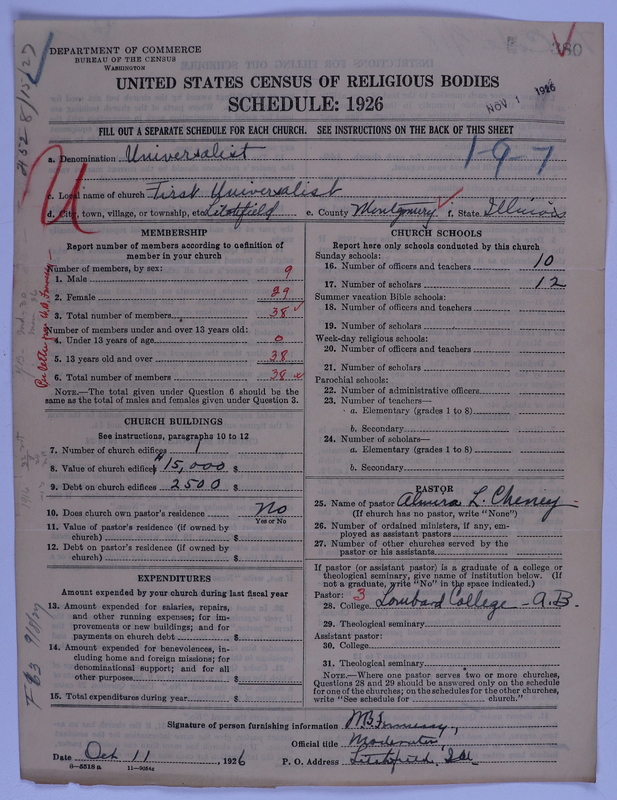 DEPARTMENT OF COMMERCE
BUREAU OF THE CENSUS
WASHINGTON
380
UNITED STATES CENSUS OF RELIGIOUS BODIES
SCHEDULE: 1926
NOV 1 1926
FILL OUT A SEPARATE SCHEDULE FOR EACH CHURCH. SEE INSTRUCTIONS ON THE BACK OF THIS SHEET
a. Denomination Universalist
1-9-7
c. Local name of church First Universalist
d. City, town, village, or township, etc. Litchfield e. County Montgomery f. State Illinois
MEMBERSHIP
Report number of members according to definition of
member in your church
Number of members, by sex:
1. Male 9
2. Female 29
3. Total number of members 38
Number of members under and over 13 years old:
4. Under 13 years of age 0
5. 13 years old and over 38
6. Total number of members 38
NOTE.—The total given under Question 6 should be
same as the total of males and females given under Question 3.
CHURCH BUILDINGS
See instructions, paragraphs 10 to 12
7. Number of church edifices 1
8. Value of church edifices $ 15,000 $
9. Debt on church edifices 2500 $
10. Does church own pastor's residence No
Yes or No
11. Value of pastor's residence (if owned by
church) $
12. Debt on pastor's residence (if owned by
church) $
EXPENDITURES
Amount expended by your church during last fiscal year
13. Amount expended for salaries, repairs,
and other running expenses; for im-
provements or new buildings; and for
payments on church debt $
14. Amount expended for benevolences, in-
cluding home and foreign missions; for
denominational support; and for all
other purposes $
15. Total expenditures during year $
CHURCH SCHOOLS
Report here only schools conducted by this church
Sunday schools:
16. Number of officers and teachers 10
17. Number of scholars 12
Summer vacation Bible schools:
18. Number of officers and teachers
19. Number of scholars
Week-day religious schools:
20. Number of officers and teachers
21. Number of scholars
Parochial schools:
22. Number of administrative officers
23. Number of teachers—
a. Elementary (grades 1 to 8)
b. Secondary
24. Number of scholars—
a. Elementary (grades 1 to 8)
b. Secondary
PASTOR
25. Name of pastor Almira L. Cheney
(If church has no pastor, write "None")
26. Number of ordained ministers, if any, em-
ployed as assistant pastors
27. Number of other churches served by the
pastor or his assistants
If pastor (or assistant pastor) is a graduate of a college or
theological seminary, give name of institution below. (If
not a graduate, write "No" in the space indicated.)
Pastor: 3
28. College Lombard College - A.B.
29. Theological seminary
Assistant pastor:
30. College
31. Theological seminary
NOTE.—Where one pastor serves two or more churches,
Questions 28 and 29 should be answered only on the schedule
for one of the churches; on the schedules for the other churches,
write "See schedule for church."
Signature of person furnishing information
Official title Moderator
Date Oct 11, 1926 P. O. Address Litchfield, Ill
8-5518 a